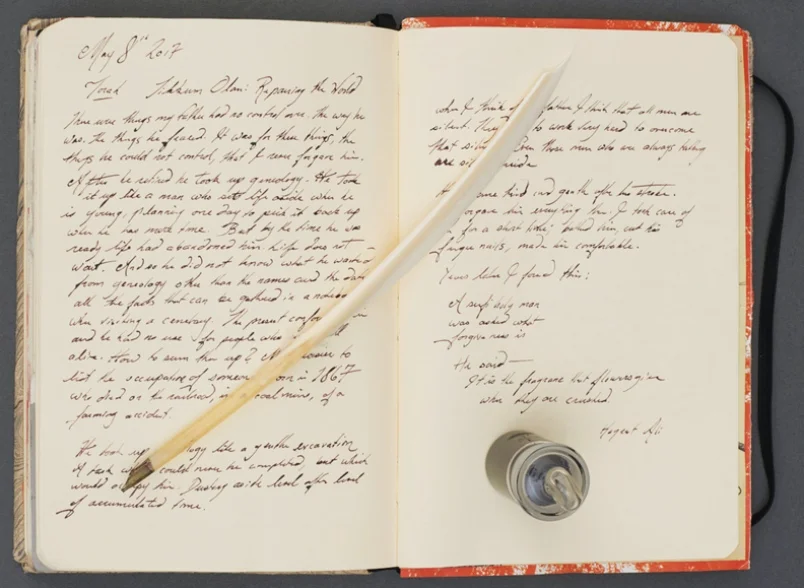 May 8st 2017
Torah Tikkum Olam: Repairing the World
There were things my father had no control over. the way he
was. the things he feared. It was for these things, the
things he could not control, that I never forgave him.
After he retired he took up geneology. He took
it up like a man who sets life aside when he
is young, planning one day to pick it back up
when he has more time. But by the time he was
ready life had abandoned him. Life does not
wait. And so he did not know what he wanted
from geneology other than the names and the dates
all the facts that can be gathered in a notebook
when visiting a cemetary. The present
and he had no use for people who
alive. How to sum that up? easier to
list the occupation of someone born in 1867
who died on the railroad, in a coal mine, of a
farming accident.
He took up like a gentle excavation
A task could never be completed, but which
would occupy him. Dusting aside level after level
of accumulated time.
when I think of I think that all men are
silent. They to work very hard to overcome
that Even those men who are always talking
are
kind and gentle after his stroke.
forgave him everything then. I took care of
for a short time; bathed him, cut his
finger nails, made him comfortable.
Years later I found this:
A sufi holy man
was asked what
forgiveness is
He said—
It is the fragrance that flowers give
when they are crushed.
Hazrat Ali